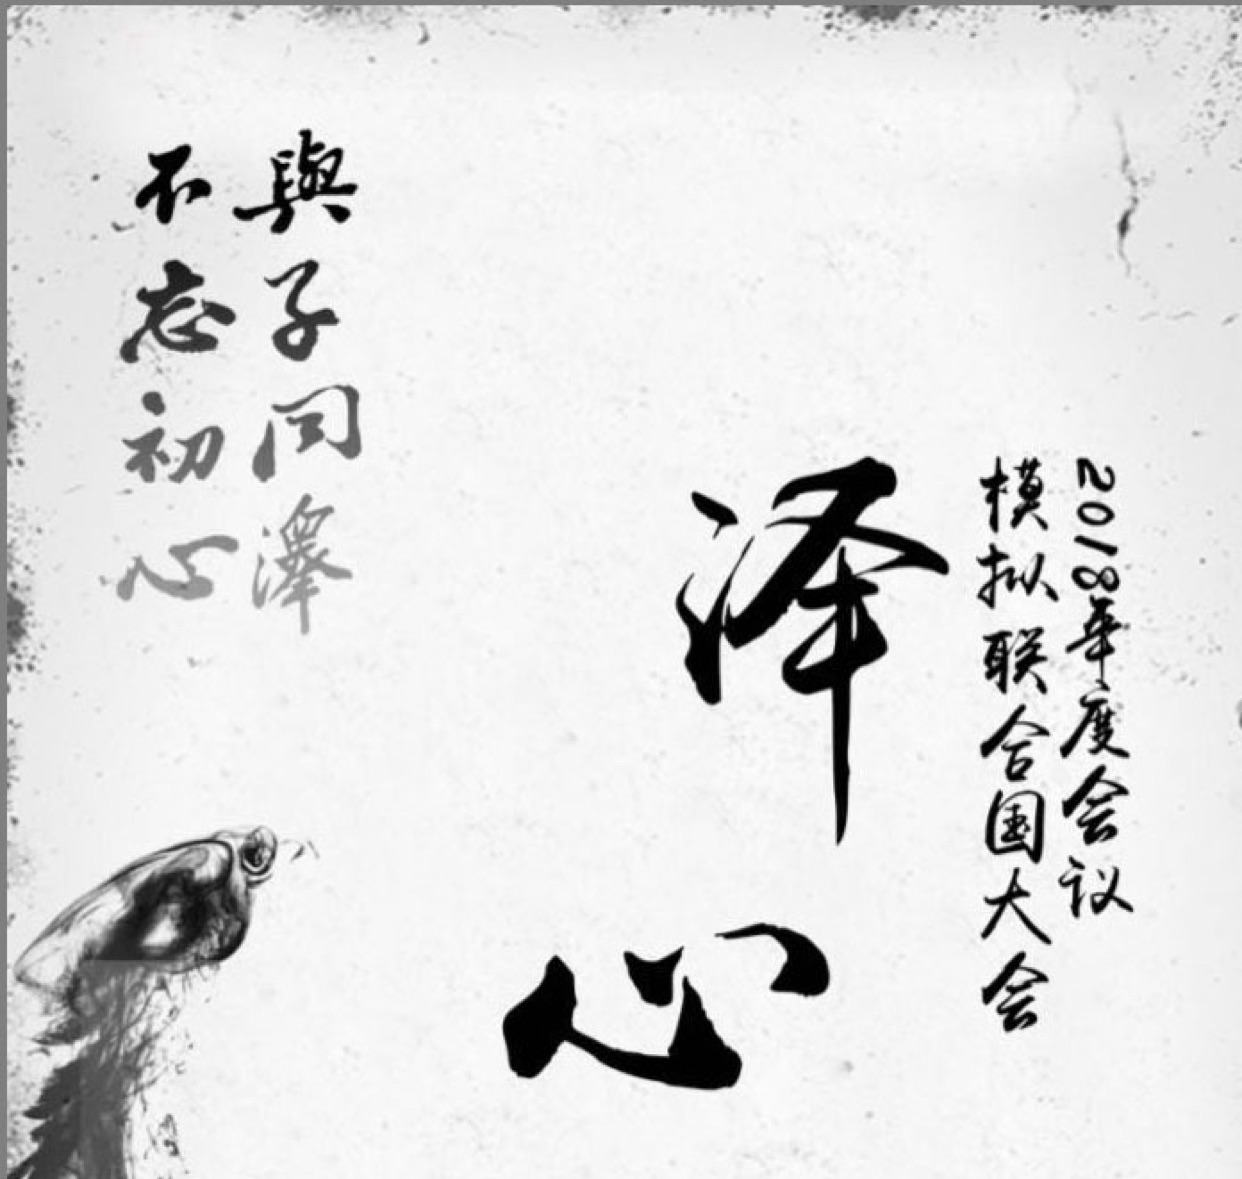 2018年度会议
模拟联合国大会
泽心
與子同澤
不忘初心